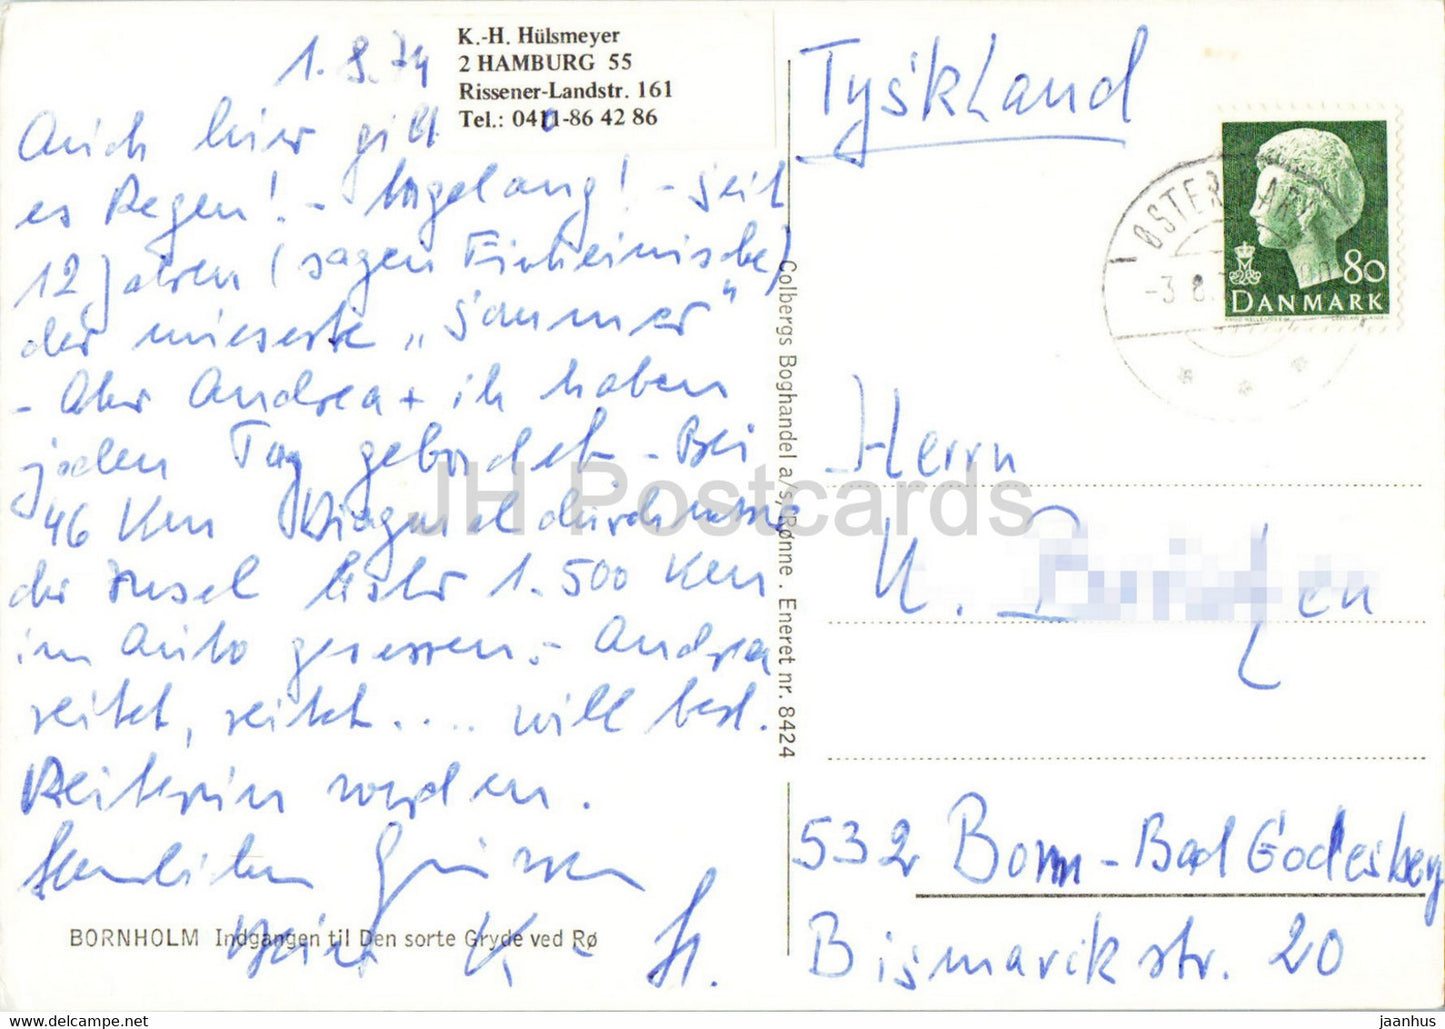 K.-H. Hülsmeyer
2 HAMBURG 55
Rissener-Landstr. 161
Tel.: 0411-86 42 86
1.8.74
Auch hier gilt
es Regen! - tagelang! - seit
12 Jahren (sagen Einheimische)
der mieseste „Sommer"
- Aber Andrea + ich haben
jeden Tag gebadet - Bei
46 Km Diagonaldurchmesser
der Insel bisher 1.500 Km
im Auto gesessen. - Andrea
reitet, reitet .... will best.
Reiterin werden.
Herzlichen Grüssen
K. - H.
BORNHOLM Indgangen til Den sorte Gryde ved Rø
Colbergs Boghandel a/s, Rønne . Eneret nr. 8424
Tyskland
ØSTERMARIE
-3.8.
80
DANMARK
Herrn
532 Bonn-Bad Godesberg
Bismarckstr. 20
JH Postcards
https://www.ebay.com/usr/jaanhus